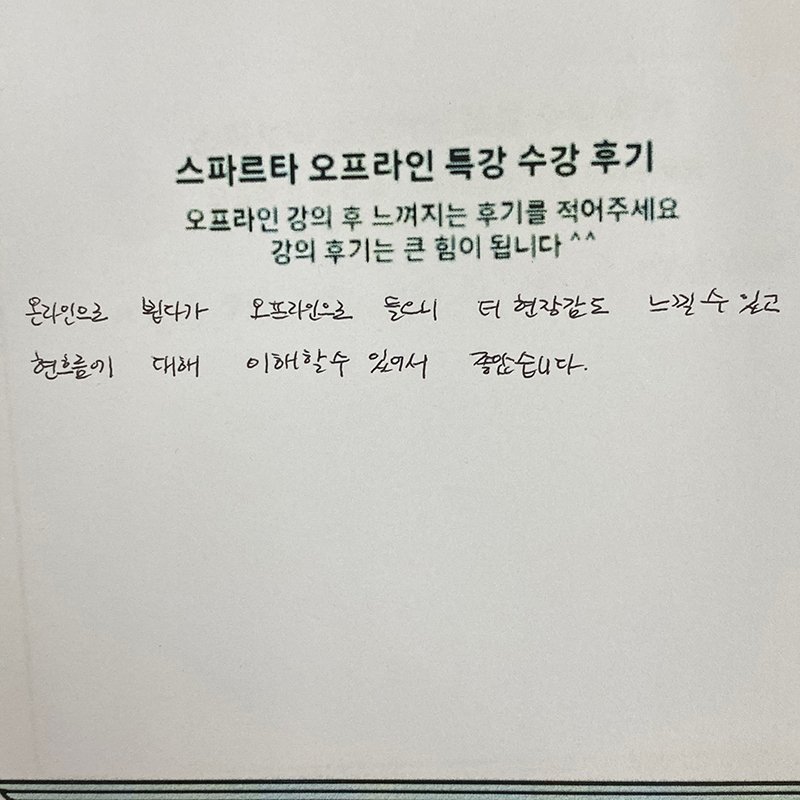 스파르타 오프라인 특강 수강 후기
오프라인 강의 후 느껴지는 후기를 적어주세요
강의 후기는 큰 힘이 됩니다 ^^
온라인으로 뵙다가 오프라인으로 들으니 더 현장감도 느낄 수 있고
현흐름에 대해 이해할수 있어서 좋았습니다.